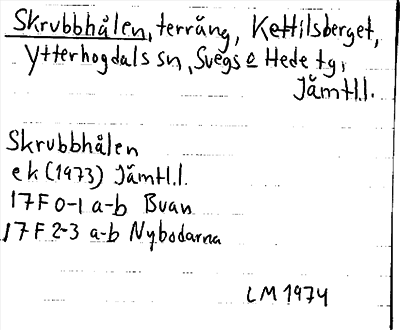 Skrubbhålen, terräng, Kettilsberget,
Ytterhogdals sn, Svegs o Hede tg,
Jämtl.l.
Skrubbhålen
ek (1973) Jämtl.l.
17F 0-1 a-b Buan
17F 2-3 a-b Nybodarna
LM 1974